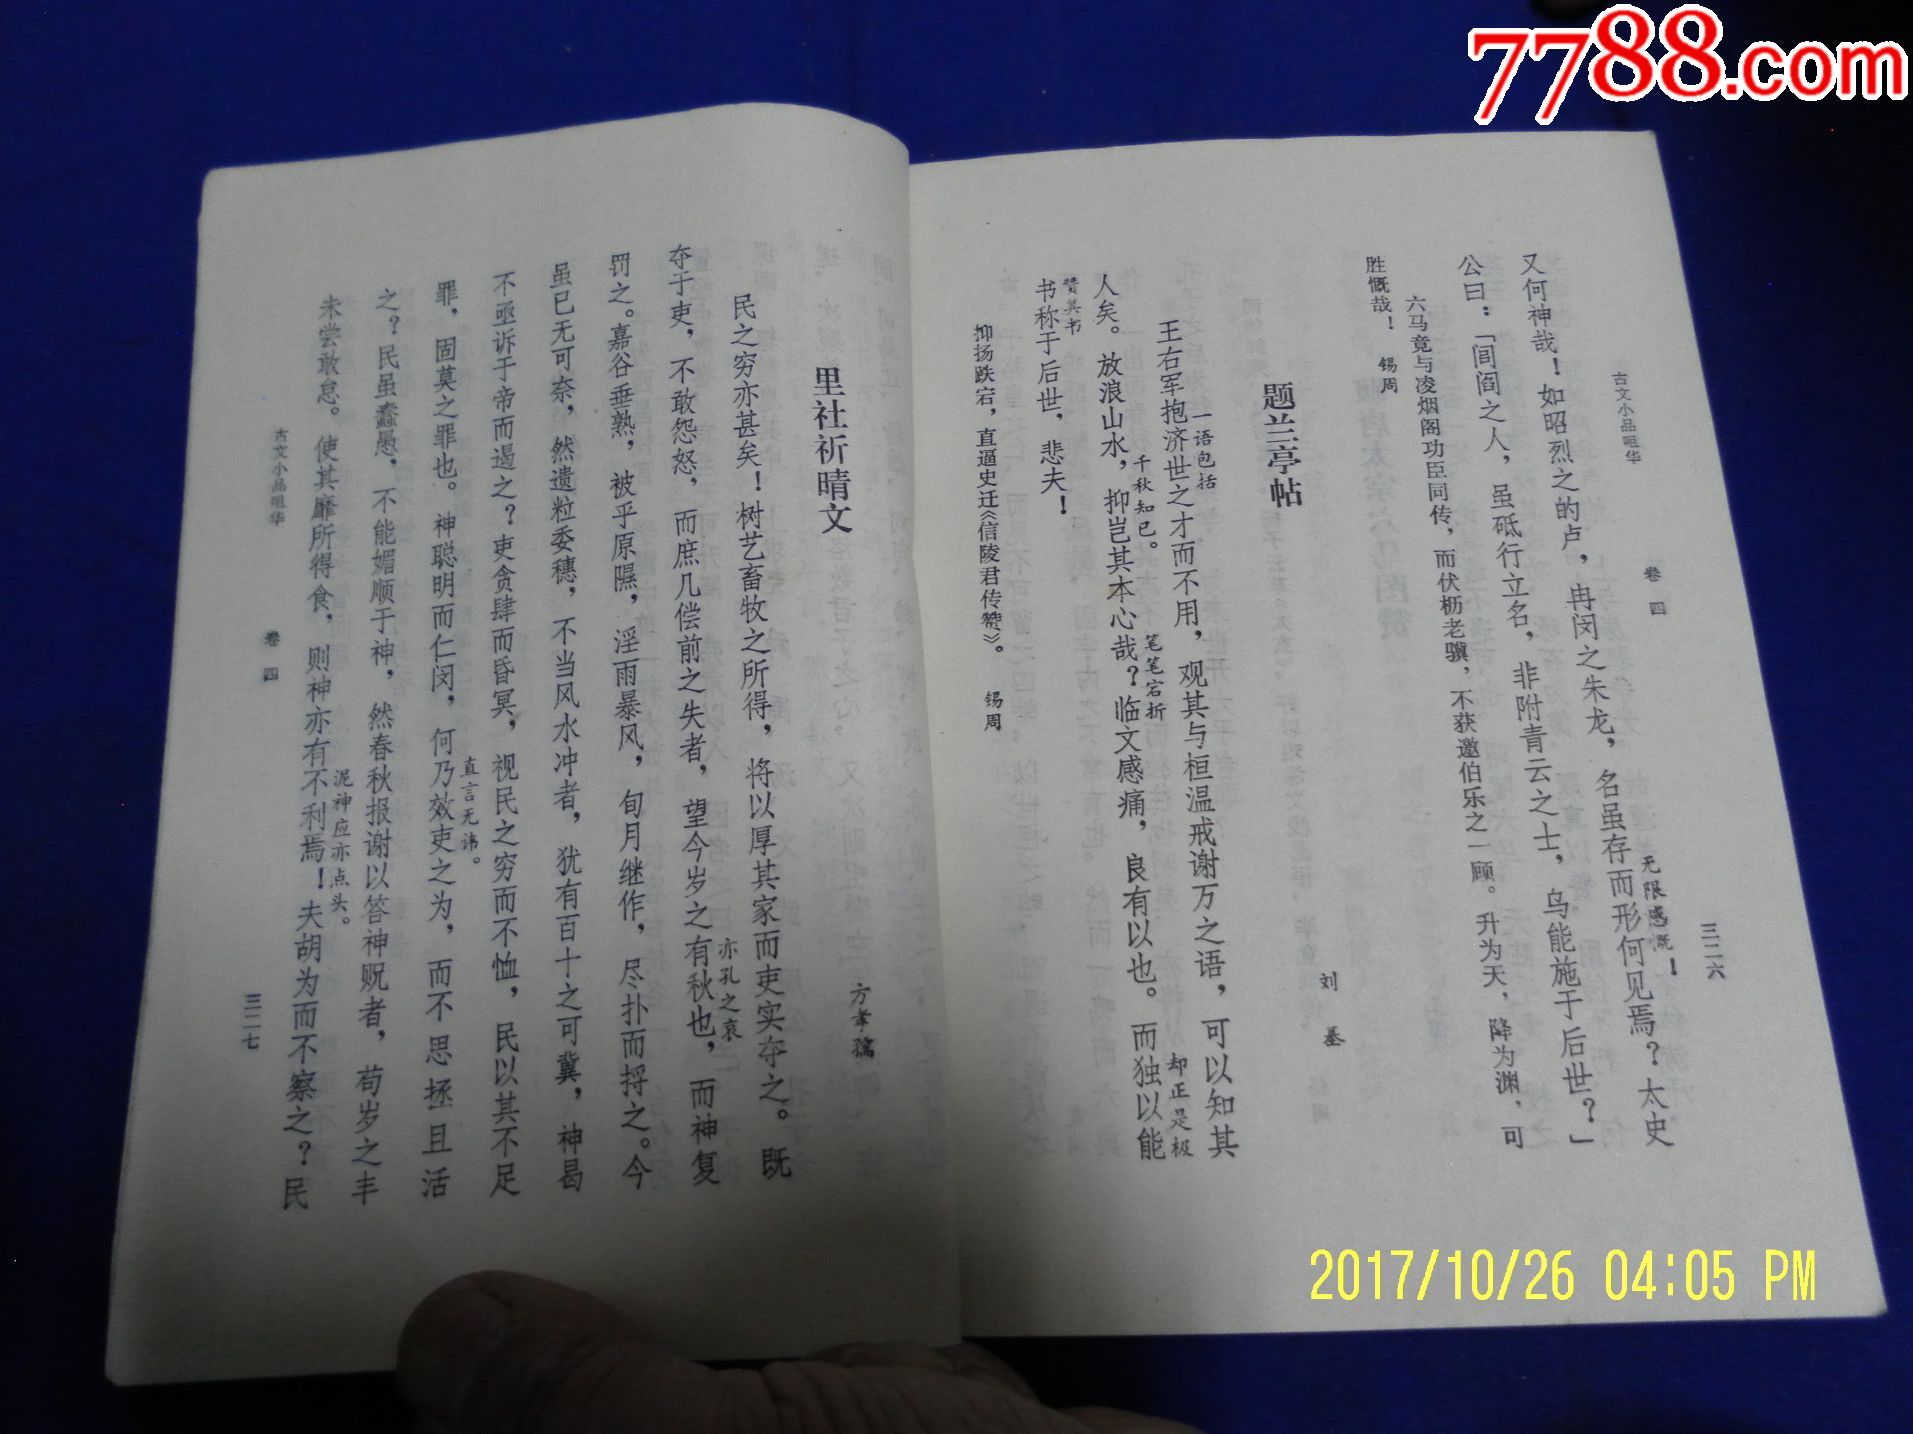 7788.com
古文小品咀华　卷四　三二六
又何神哉！如昭烈之的卢，冉闵之朱龙，名虽存而形何见焉？太史
无限感慨！
公曰：「闾阎之人，虽砥行立名，非附青云之士，乌能施于后世？」
六马竟与凌烟阁功臣同传，而伏枥老骥，不获邀伯乐之一顾。升为天，降为渊，可
胜慨哉！　锡周
题兰亭帖
刘基
王右军抱济世之才而不用，观其与桓温戒谢万之语，可以知其
一语包括　千秋知己。
人矣。放浪山水，抑岂其本心哉？临文感痛，良有以也。而独以能
笔笔宕折　却正是极
赞其书
书称于后世，悲夫！
抑扬跌宕，直逼史迁《信陵君传赞》。　锡周
里社祈晴文
方孝孺
民之穷亦甚矣！树艺畜牧之所得，将以厚其家而吏实夺之。既
夺于吏，不敢怨怒，而庶几偿前之失者，望今岁之有秋也，而神复
亦孔之哀
罚之。嘉谷垂熟，被乎原隰，淫雨暴风，旬月继作，尽扑而捋之。今
虽已无可奈，然遗粒委穗，不当风水冲者，犹有百十之可冀，神曷
不亟诉于帝而遏之？吏贪肆而昏冥，视民之穷而不恤，民以其不足
罪，固莫之罪也。神聪明而仁闵，何乃效吏之为，而不思拯且活
直言无讳。
之？民虽蠢愚，不能媚顺于神，然春秋报谢以答神贶者，苟岁之丰
未尝敢怠。使其靡所得食，则神亦有不利焉！夫胡为而不察之？民
泥神应亦点头。
古文小品咀华　卷四　三二七
2017/10/26 04:05 PM